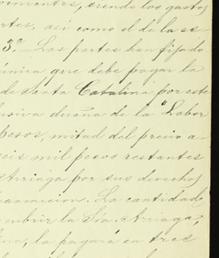 nientes, siendo los gastos
tes, así como el de la es
3º Las partes han fijado
única que debe pagar la
de Santa Catalina por este
lusiva dueña de la Labor
pesos, mitad del precio a
seis mil pesos restantes
Arriaga por sus derechos
La cantidad
cubrir la Sra. Arriaga,
la pagará en tres